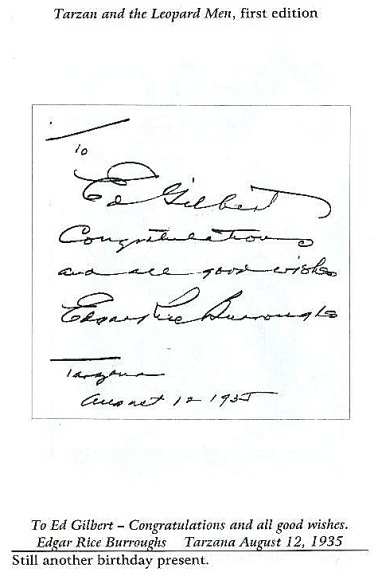 Tarzan and the Leopard Men, first edition
To
Ed Gilbert
Congratulations
and all good wishes
Edgar Rice Burroughs
Tarzana
August 12 1935
To Ed Gilbert – Congratulations and all good wishes.
Edgar Rice Burroughs Tarzana August 12, 1935
Still another birthday present.